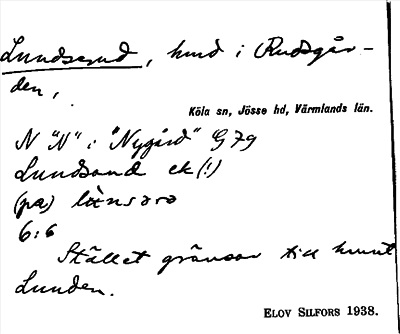 Lundsrud, hmd i Rudsgår-
den,
Köla sn, Jösse hd, Värmlands län.
N "N" i "Nygård" G 79
Lundsand ek (!)
(på)
6:6
Stället gränsar till hmnt
Lunden.
ELOV SILFORS 1938.